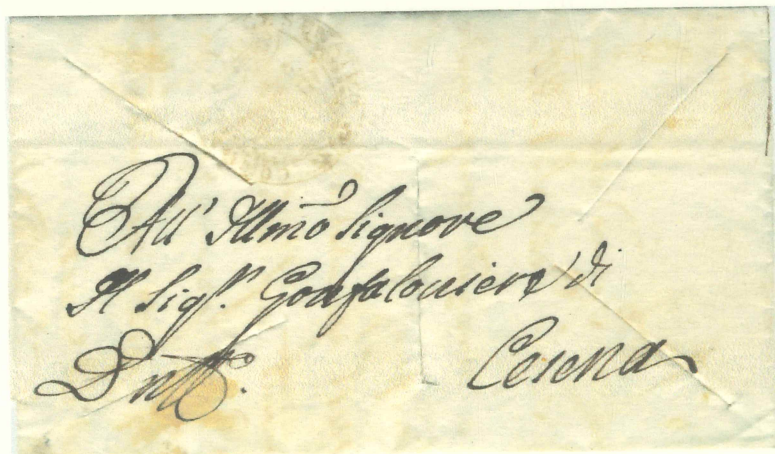 All' Illmo Signore
Il Sigr. Gonfaloniere di
Cesena